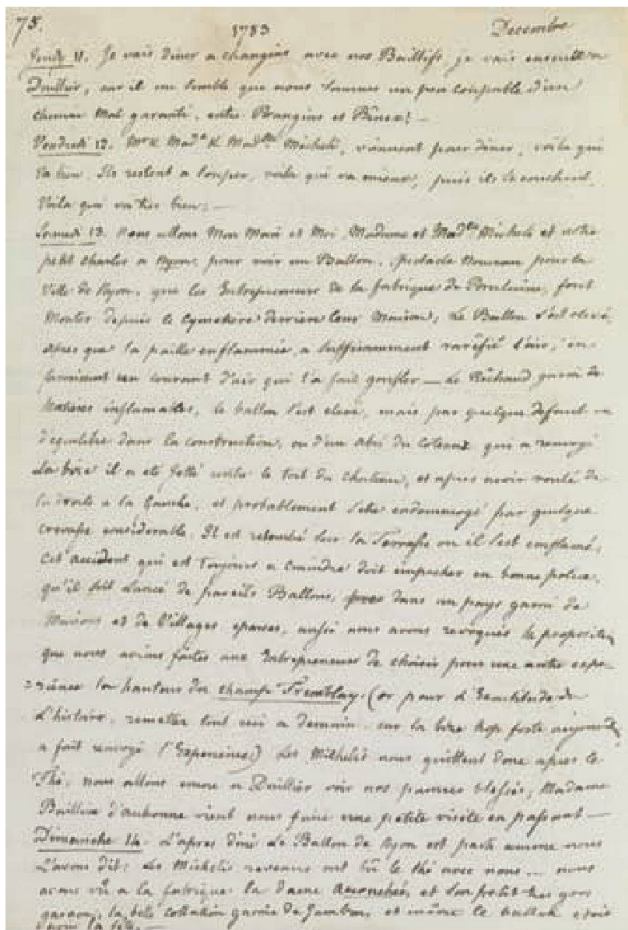 78. 1783 Decembre
Jeudi 11. Je vais diner a changins avec nos Baillifs je vais ensuitte a
Duillier, car il me semble que nous sommes un peu coupable d'un
chemin mal garanti, entre Prangins et Bénex! —
Vendredi 12. Mr & Made & Madlle Micheli, viennent pour diner, voila qui
va bien. Ils restent a souper, voila qui va mieux, puis ils se couchent,
Voila qui va tres bien; —
Samedi 13. Nous allons Mon Mari et Moi, Madame et Madlle Micheli et notre
petit Charles a Nyon, pour voir un Ballon, spectacle nouveau pour la
Ville de Nyon, que les Entrepreneurs de la fabrique de Porcelaine, font
Monter depuis le Cymetiere derriere leur Maison; Le Ballon s'est elevé,
après que la paille enflammée, a suffisamment raréfié l'air, en
fournissant un courant d'air qui l'a fait gonfler — Le Réchaud garni de
Matieres inflamables, le ballon s'est elevé, mais par quelque defaut
d'équilibre dans la construction, ou d'un abri du coteau qui a renvoyé
la bize il a eté jetté contre le toit du Chateau, et apres avoir roulé de
la droite a la Gauche, et probablement s'etre endommagé par quelque
crevasse considerable. Il est retombé sur la Terrasse ou il s'est enflamé,
cet accident qui est toujours a craindre doit empecher en bonne police,
qu'il soit Lancé de pareils Ballons, dans un pays garni de
Maisons et de Villages eparses, aussi nous avons revoqués la proposition
que nous avions faites aux Entrepreneurs de choisir pour une autre expe-
=rience les hauteurs du champ Tremblay. (or pour l'Exactitude de
L'histoire, remettez tout ceci a demain, car la bize trop forte aujourd
a fait renvoyé l'Experience) Les Michelis nous quittent donc apres le
Thé, nous allons encore a Duillier voir nos pauvres blessés, Madame
Baillive d'aubonne vient nous faire une petite visite en passant —
Dimanche 14. L'apres diné Le Ballon de Nyon est parti comme nous
L'avons dit: Les Michelis revenus ont bu le thé avec nous — nous
avons vû a la fabrique la dame accouchée, et son petit tres gros
garçon, la belle collation garnie de Jambon, et même ce ballon etoit